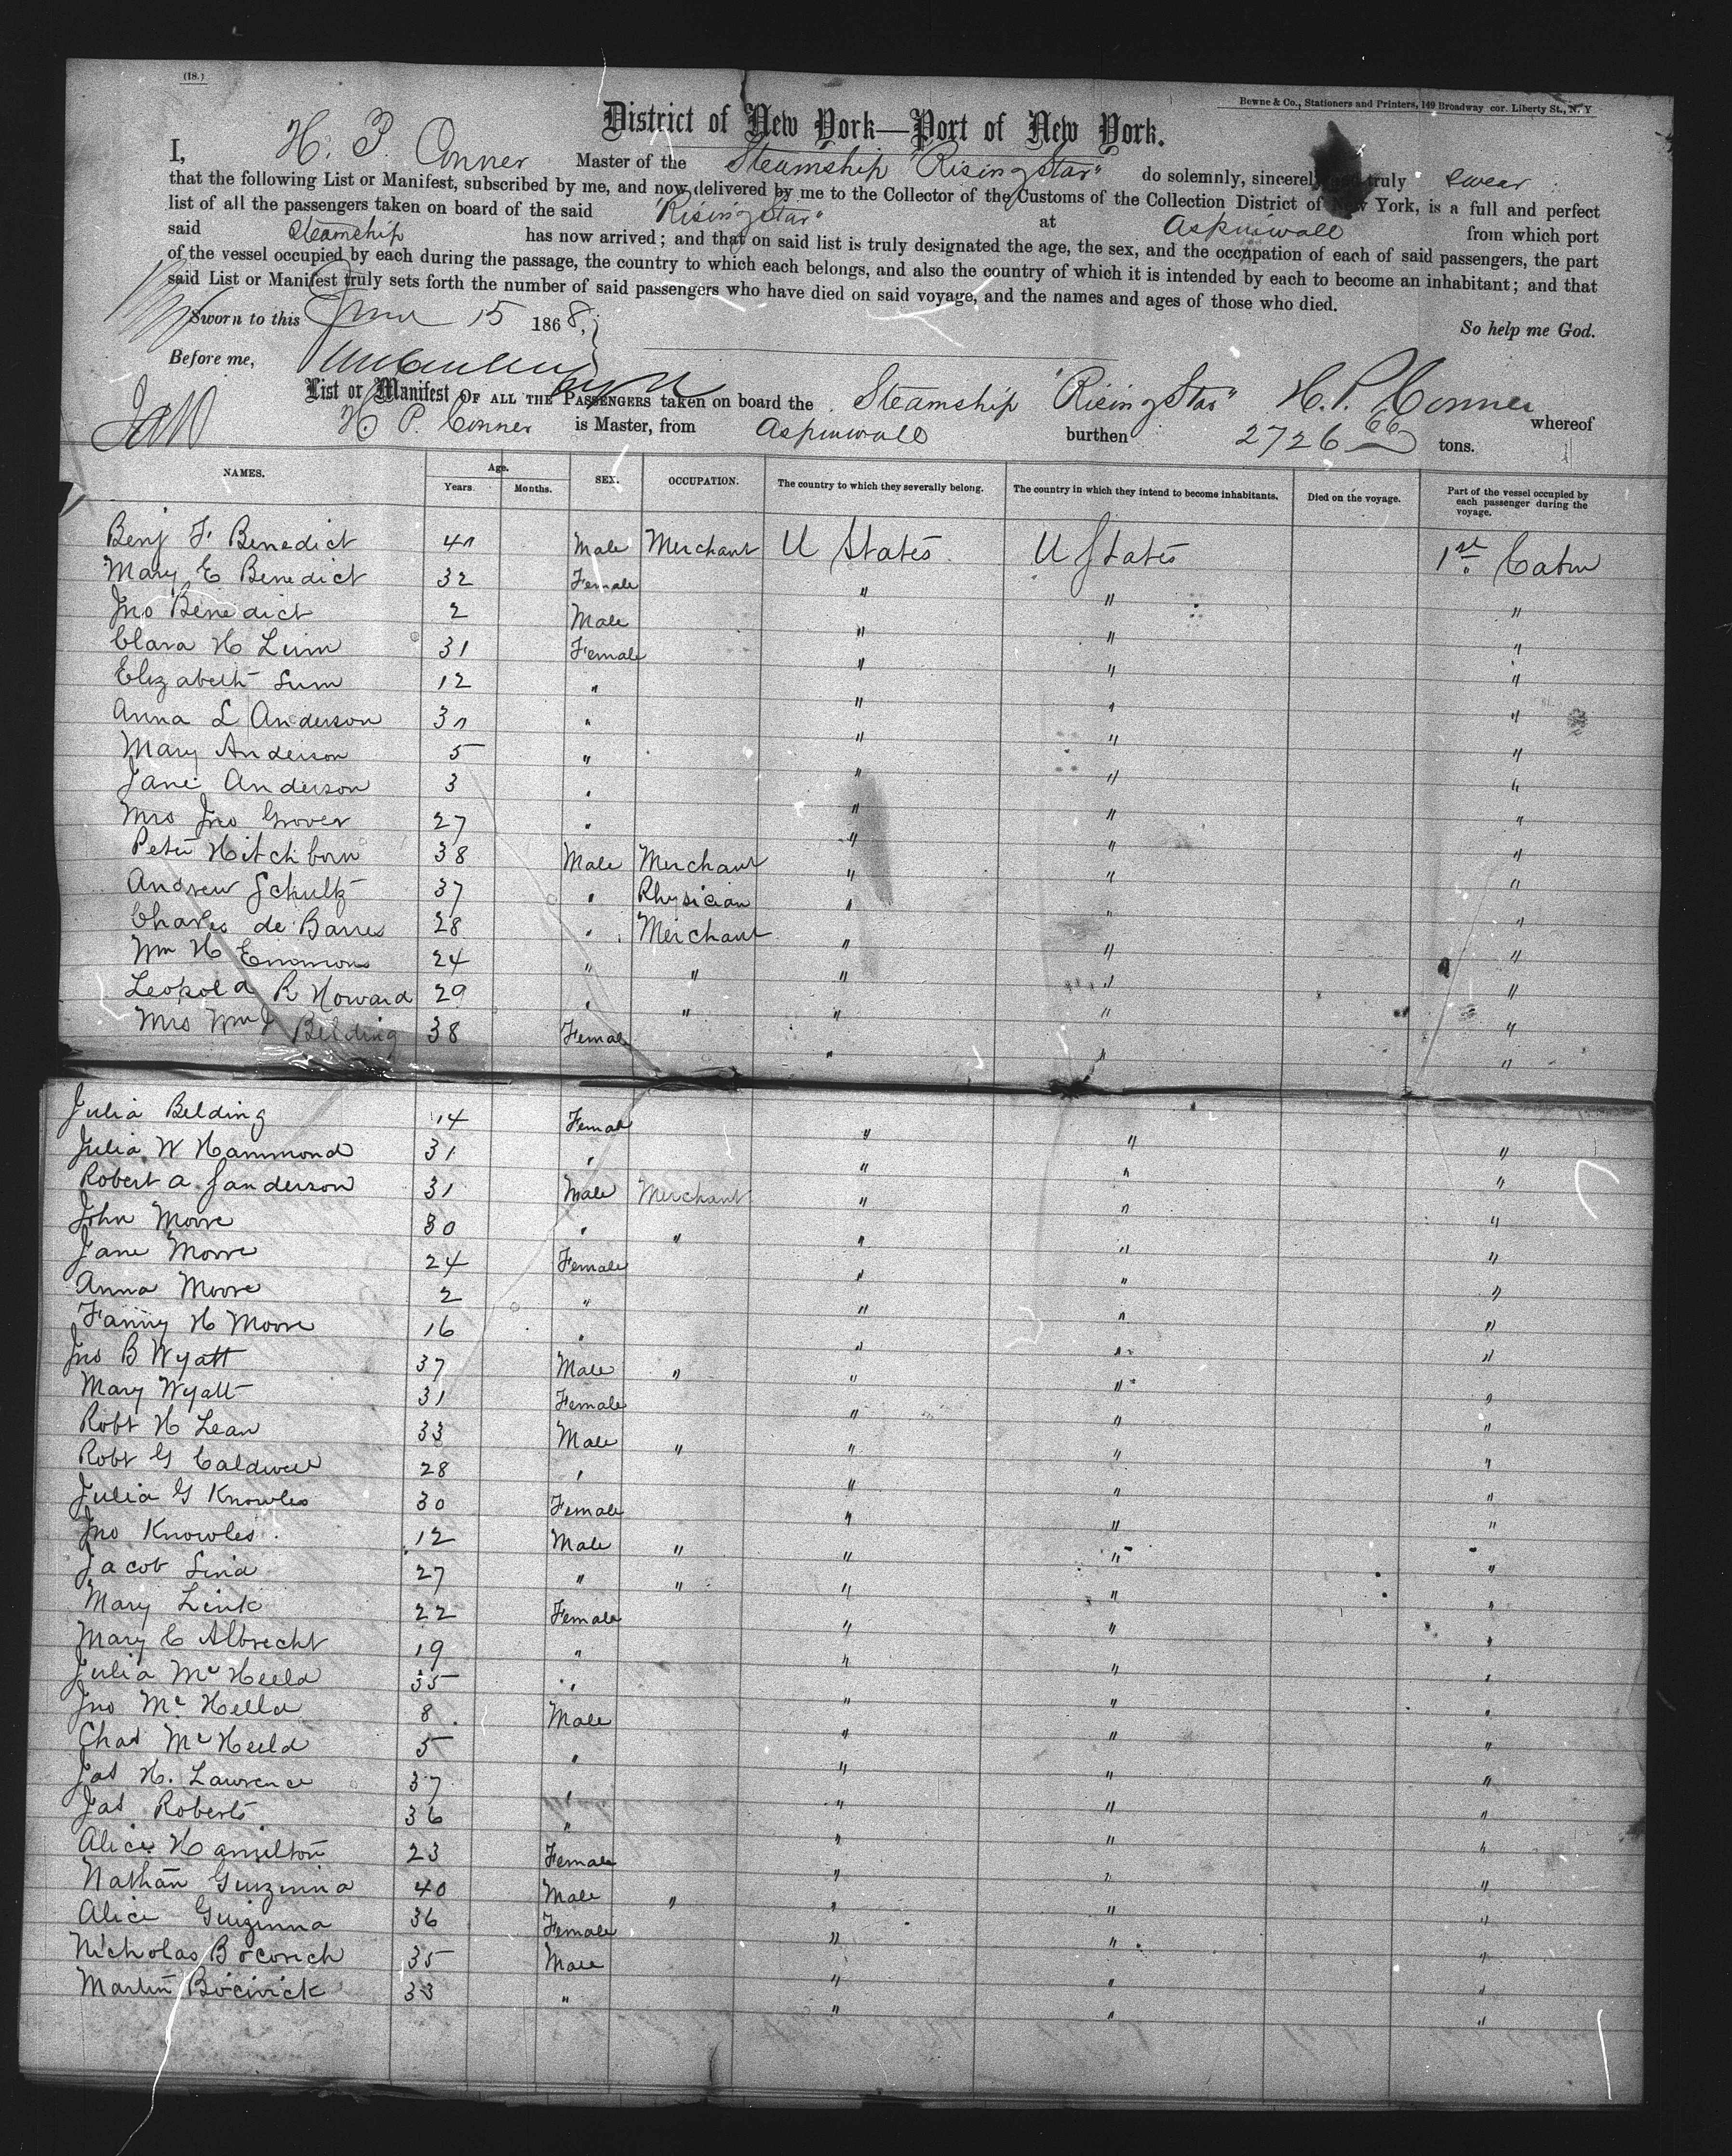 (18.)
Bowne & Co., Stationers and Printers, 149 Broadway cor. Liberty St., N. Y
District of New York—Port of New York.
I, H. P. Conner Master of the Steamship "Rising Star" do solemnly, sincerely and truly swear
that the following List or Manifest, subscribed by me, and now delivered by me to the Collector of the Customs of the Collection District of New York, is a full and perfect
list of all the passengers taken on board of the said "Rising Star" at Aspinwall from which port
said Steamship has now arrived; and that on said list is truly designated the age, the sex, and the occupation of each of said passengers, the part
of the vessel occupied by each during the passage, the country to which each belongs, and also the country of which it is intended by each to become an inhabitant; and that
said List or Manifest truly sets forth the number of said passengers who have died on said voyage, and the names and ages of those who died.
Sworn to this June 15 1868, So help me God.
Before me, H. P. Conner
List or Manifest OF ALL THE PASSENGERS taken on board the Steamship "Rising Star" whereof
H. P. Conner is Master, from Aspinwall burthen 2726 66 tons.
NAMES. Age. Years. Months. SEX. OCCUPATION. The country to which they severally belong. The country in which they intend to become inhabitants. Died on the voyage. Part of the vessel occupied by each passenger during the voyage.
Benj F. Benedict Male Merchant U States U States 1st Cabin
Mary E Benedict 32 Female " " "
Jno Benedict 2 Male " " "
Clara H 31 Female " " "
Elizabeth 12 " " " "
Anna L Anderson " " " "
Mary Anderson 5 " " " "
Jane Anderson 3 " " " "
Mrs Jno Grover 27 " " " "
Peter Hitchborn 38 Male Merchant " " "
Andrew Schultz 37 " Physician " " "
Charles de Barres 28 " Merchant " " "
Wm H Emmons 24 " " " " "
Leopold R Howard 29 " " " " "
Mrs Wm J Belding 38 Female " " "
Julia Belding 14 Female " " "
Julia W Hammond 31 " " " "
Robert A. Sanderson 31 Male Merchant " " "
John Moore 30 " " " " "
Jane Moore 24 Female " " "
Anna Moore 2 " " " "
Fanny H Moore 16 " " " "
Jno B Wyatt 37 Male " " " "
Mary Wyatt 31 Female " " "
Robt H Lean 33 Male " " " "
Robt G Caldwell 28 " " " "
Julia G Knowles 30 Female " " "
Jno Knowles 12 Male " " " "
Jacob 27 " " " " "
Mary Link 22 Female " " "
Mary C Albrecht 19 " " " "
Julia Mc 35 " " " "
Jno Mc 8 Male " " "
Chas Mc 5 " " " "
Jas H. Lawrence 37 " " " "
Jas Roberts 36 " " " "
Alice Hamilton 23 Female " " "
Nathan 40 Male " " " "
Alice 36 Female " " "
Nicholas Bocovich 35 Male " " "
Martin 33 " " " "